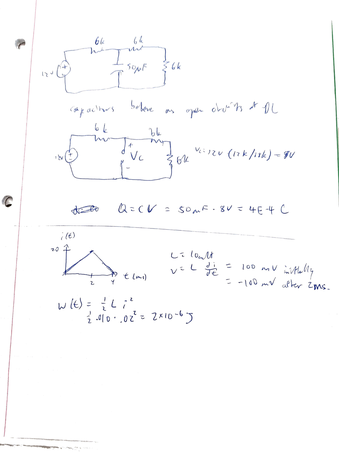 6k 6k
12v 50µF 6k
capacitors behave as open circuits at DC
6k 6k
12v + Vc - 6k Vc = 12v (12k/18k) = 8V
Q = CV = 50µF · 8V = 4E-4 C
i(t)
20
2 4 t (ms)
L = 10mH
V = L di/dt = 100 mV initially
= -100 mV after 2ms.
w(t) = 1/2 L i²
1/2 .010 · .02² = 2x10-6 J